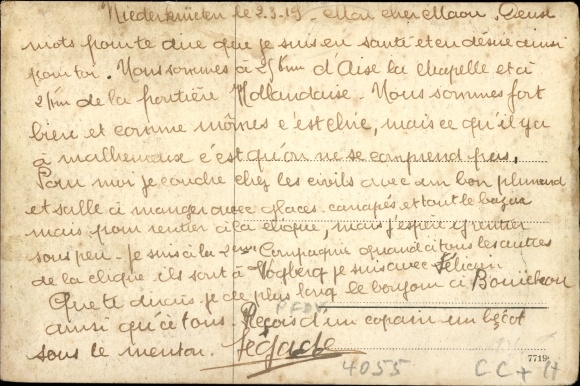 Niederkrüchten le 2.3.19 – Mon cher Maon. Deux
mots pour te dire que je suis en santé et en désire ainsi
pour toi. Nous sommes à 25 km d'Aise la chapelle et à
2 km de la frontière Hollandaise – Nous sommes fort
bien et comme mômes c'est chic, mais ce qu'il y a
à malheureux c'est qu'on ne se comprend pas,
Pour moi je couche chez les civils avec un bon plumard
et salle à manger avec glaces canapés et tout le bazar
mais pour rentrer à la clique, mais j'espère y rentrer
sous peu – Je suis à la 2ème Compagnie quand à tous les autres
de la clique ils sont à je suis avec Félicien
Que te dirais-je de plus long le bonjour à
ainsi qu'à tous. Reçois d'un copain un bécot
sous le menton.
4055
CC + H
7719